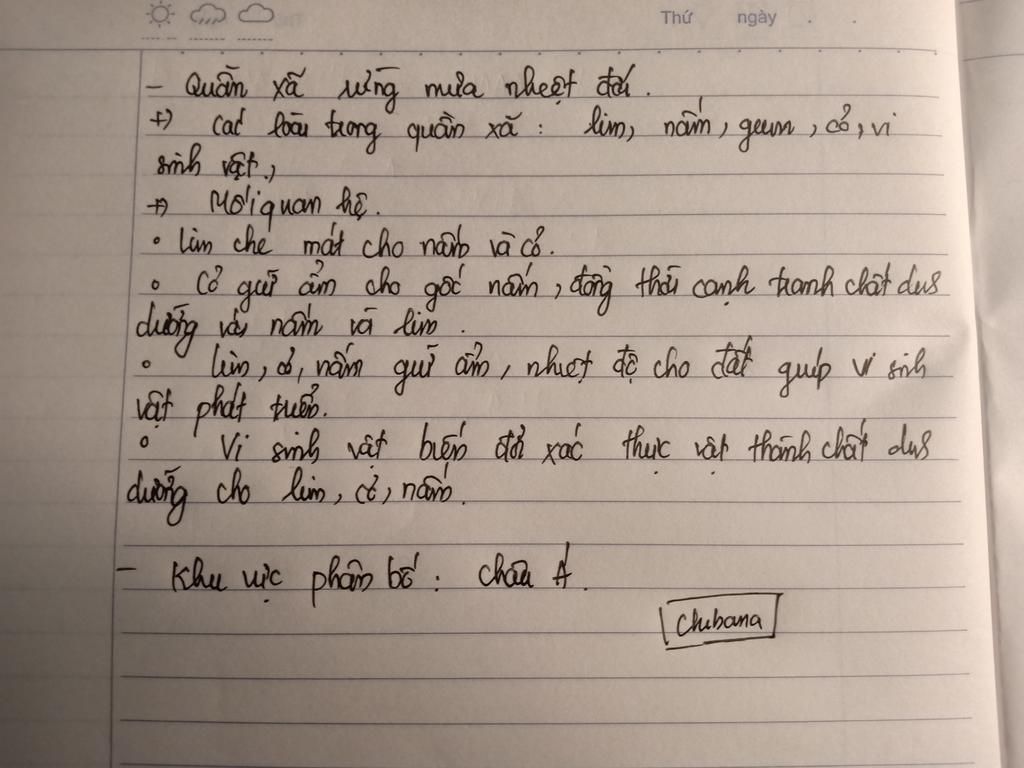 Thứ ngày . .
- Quần xã rừng mưa nhiệt đới.
+) Các loài trong quần xã : lim, nấm, giun, cỏ, vi
sinh vật.,
+) Mối quan hệ.
• Lim che mát cho nấm và cỏ.
• Cỏ giữ ẩm cho gốc nấm, đồng thời cạnh tranh chất dinh
dưỡng với nấm và lim.
• lim, cỏ, nấm giữ ẩm, nhiệt độ cho đất giúp vi sinh
vật phát triển.
• Vi sinh vật biến đổi xác thực vật thành chất dinh
dưỡng cho lim, cỏ, nấm.
- Khu vực phân bố : châu Á.
Chibana